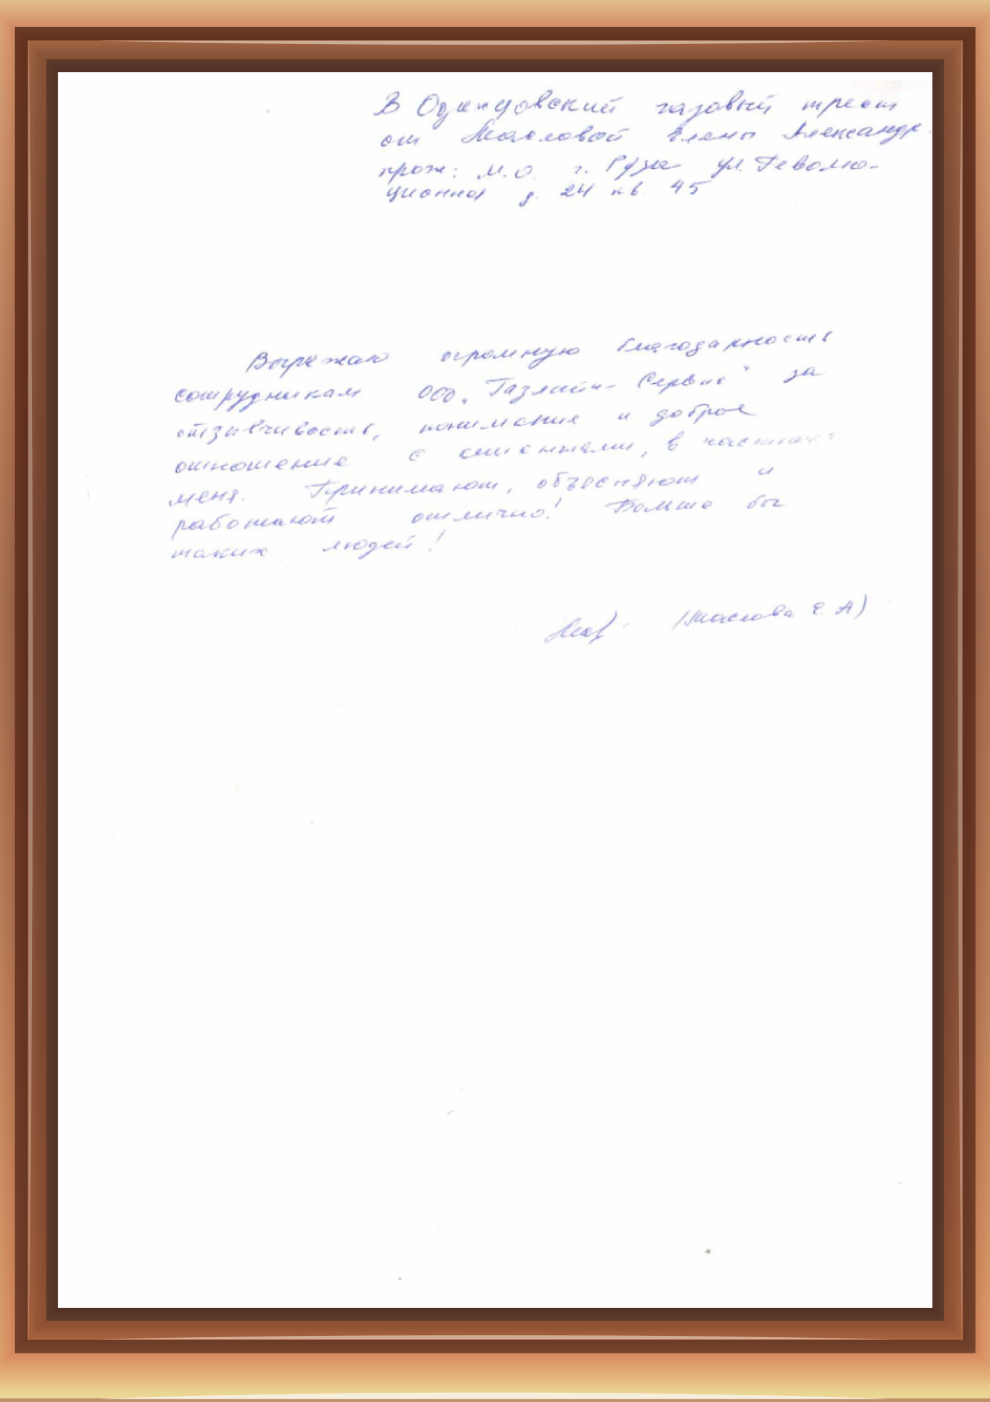 В Одинцовский газовый трест
от Масловой Елены Александр.
прож: М.О. г. Руза ул. Револю-
ционная д. 24 кв. 45
Выражаю огромную благодарность
сотрудникам ООО "Газлайн-Сервис" за
отзывчивость, понимание и доброе
отношение с клиентами, в частност
меня. Принимают, объясняют и
работают отлично! Больше бы
таких людей!
(Маслова Е. А)